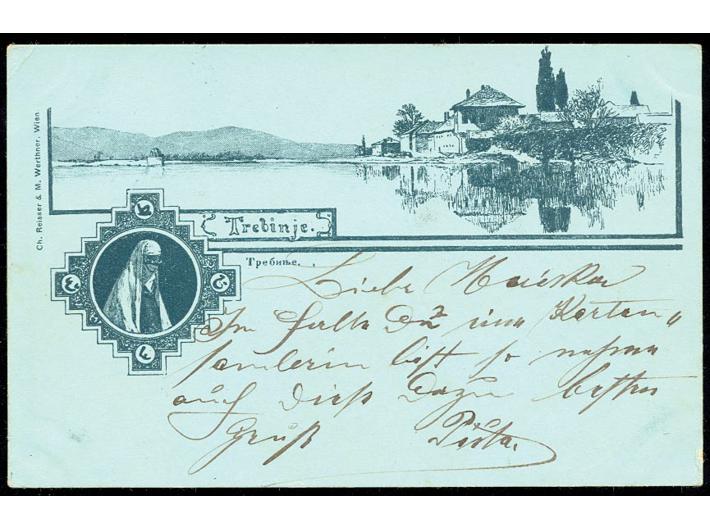 Ch. Reisser & M. Werthner, Wien
Trebinje.
Требиње.
Liebe
Im Falle Du eine Karten„
samlerin bist so nehme
auch dieß dazu besten
Gruß Pista.